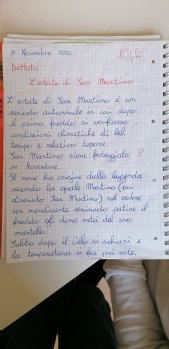 5 Novembre 2020
Dettato
L'estate di San Martino
L'estate di San Martino è un
periodo autunnale in cui dopo
il primo freddo si verificano
condizioni climatiche di bel
tempo e relativo tepore.
San Martino viene festeggiato l'
11 Novembre
Il nome ha origine dalla leggenda
secondo la quale Martino (poi
divenuto San Martino) nel vedere
un mendicante seminudo patire il
freddo gli donò metà del suo
mantello.
Subito dopo il cielo si schiarì e
la temperatura si fece più mite.